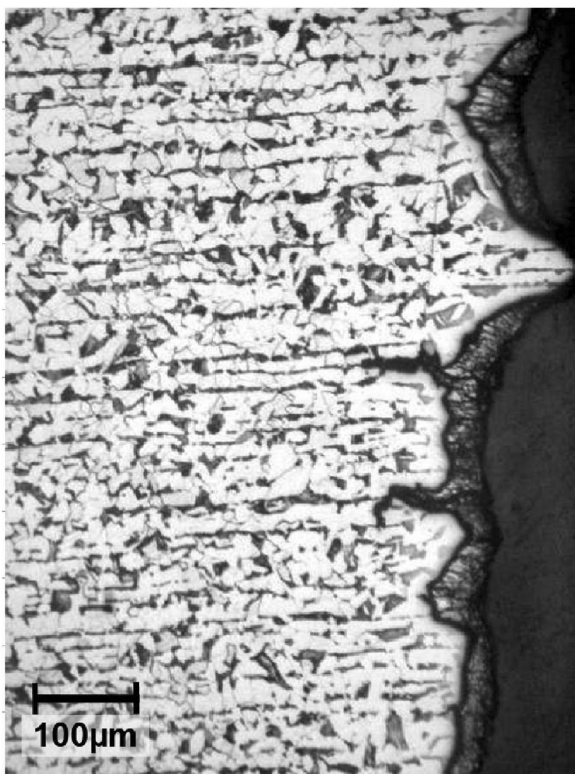 100µm